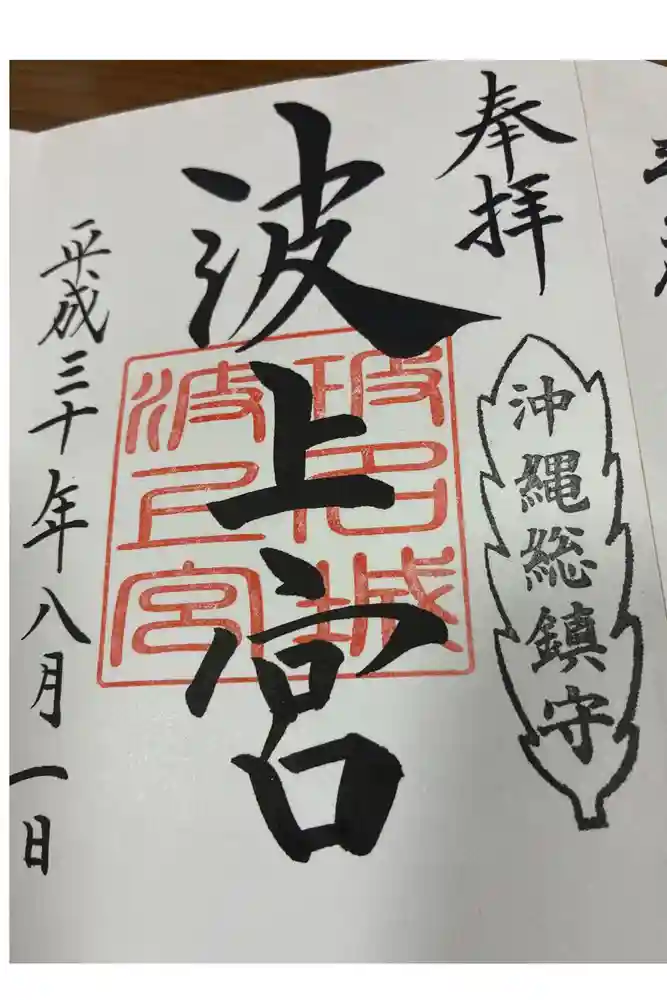 奉拝
沖縄総鎮守
波上宮
玻名城
波上宮
平成三十年八月一日